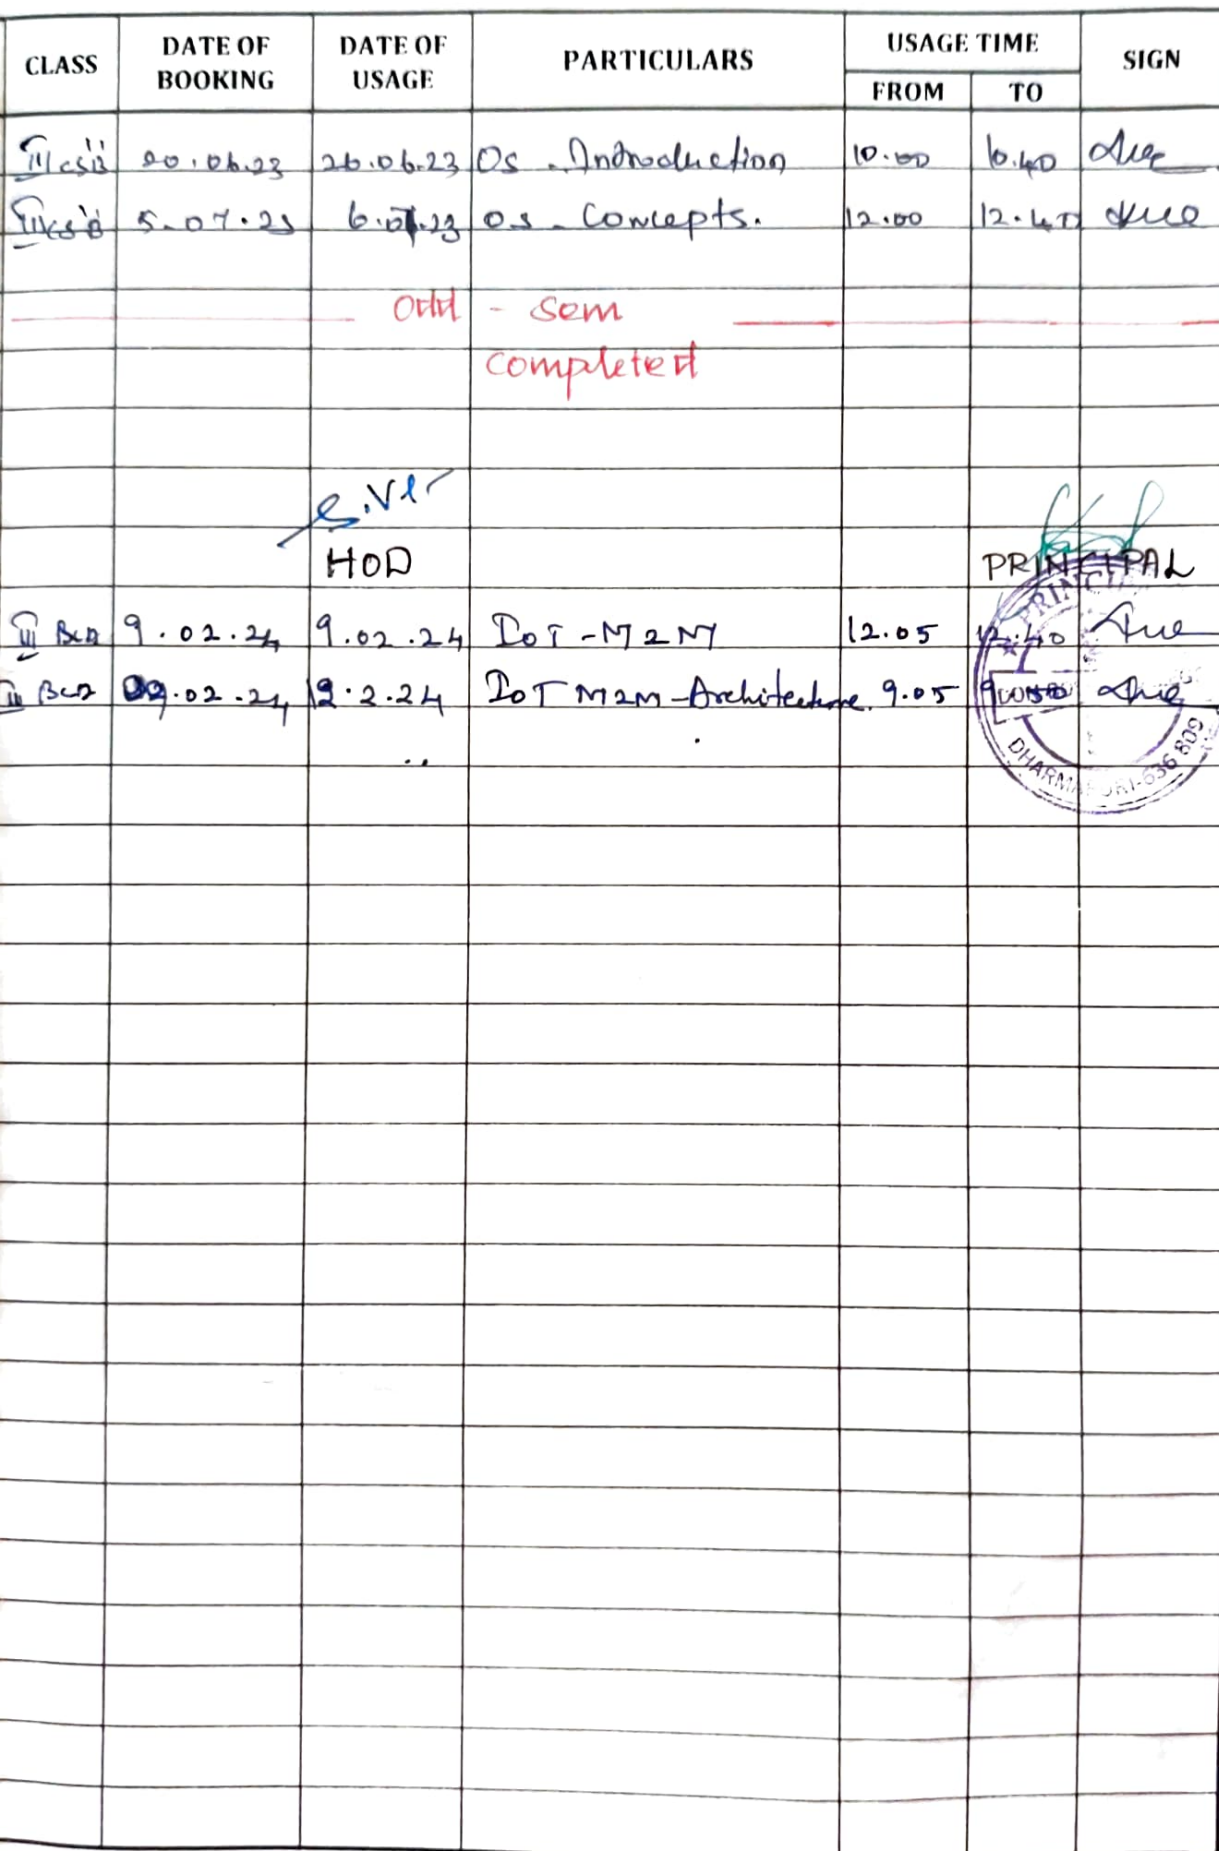 CLASS DATE OF BOOKING DATE OF USAGE PARTICULARS USAGE TIME FROM TO SIGN
III CS 'B' 20.06.23 26.06.23 OS - Introduction 10.00 10.40
III CS 'B' 5.07.23 6.07.23 OS - Concepts. 12.00 12.40
Odd - Sem
Completed
HOD PRINCIPAL
III BCA 9.02.24 9.02.24 IoT - M2M 12.05 12.40
III BCA 09.02.24 12.2.24 IoT M2M - Architecture. 9.05
PRINCI
DHARMAPURI-636 809